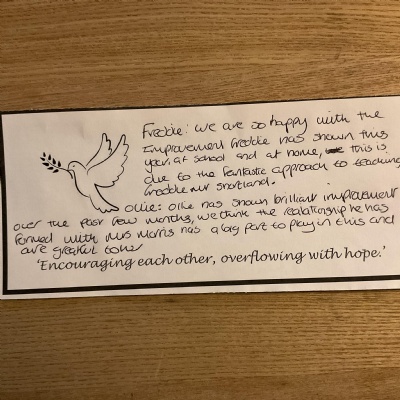 Freddie: we are so happy with the
improvement Freddie has shown this
year, at school and at home, this is
due to the fantastic approach to teaching
Freddie mr shortland.
Ollie: Ollie has shown brilliant improvement
over the past few months, we think the realationship he has
formed with Mrs Morris has a big part to play in this and
are greatful to her
'Encouraging each other, overflowing with hope.'